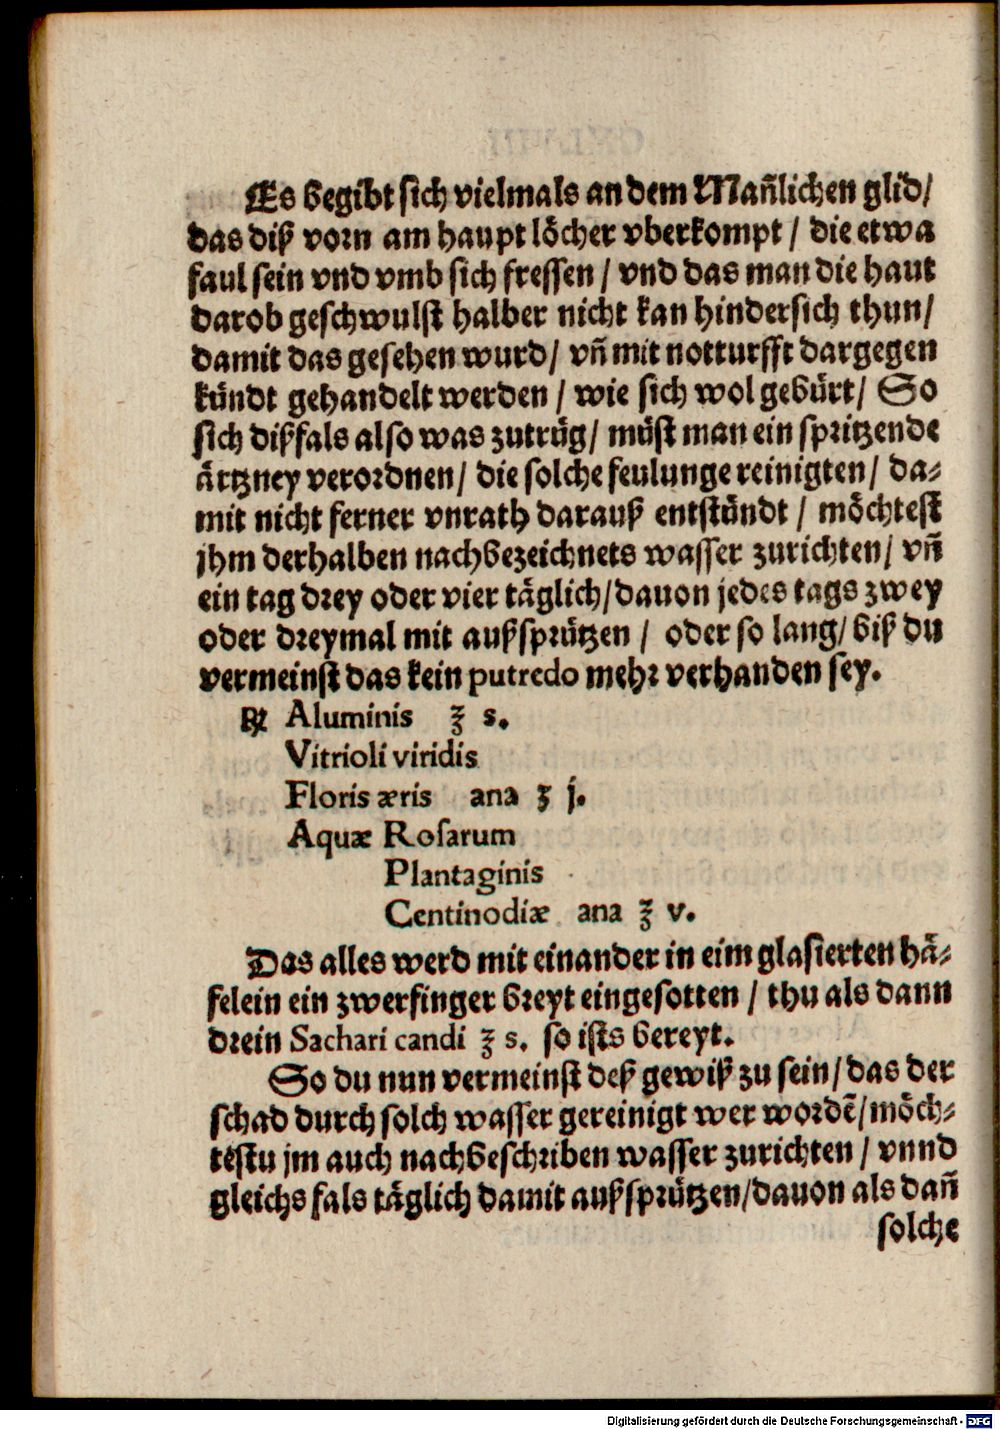 Es begibt sich vielmals an dem Mañlichen glid/
das diß vorn am haupt löcher vberkompt / die etwa
faul sein vnd vmb sich fressen / vnd das man die haut
darob geschwulst halber nicht kan hindersich thun/
damit das gesehen wurd/ vñ mit notturfft dargegen
kündt gehandelt werden / wie sich wol gebürt/ So
sich dißfals also was zutrüg/ müst man ein spritzende
ärtzney verordnen/ die solche feulunge reinigten/ da-
mit nicht ferner vnrath darauß entstündt / möchtest
jhm derhalben nachbezeichnets wasser zurichten/ vñ
ein tag drey oder vier täglich/dauon jedes tags zwey
oder dreymal mit außsprützen / oder so lang/ biß du
vermeinst das kein putredo mehr verhanden sey.
℞ Aluminis ℥ s.
Vitrioli viridis
Floris æris ana ʒ j.
Aquæ Rosarum
Plantaginis
Centinodiæ ana ℥ v.
Das alles werd mit einander in eim glasierten hä-
felein ein zwerfinger breyt eingesotten / thu als dann
drein Sachari candi ℥ s. so ists bereyt.
So du nun vermeinst deß gewiß zu sein/das der
schad durch solch wasser gereinigt wer wordẽ/möch-
testu jm auch nachbeschriben wasser zurichten / vnnd
gleichs fals täglich damit außsprützen/dauon als dañ
solche
Digitalisierung gefördert durch die Deutsche Forschungsgemeinschaft - DFG